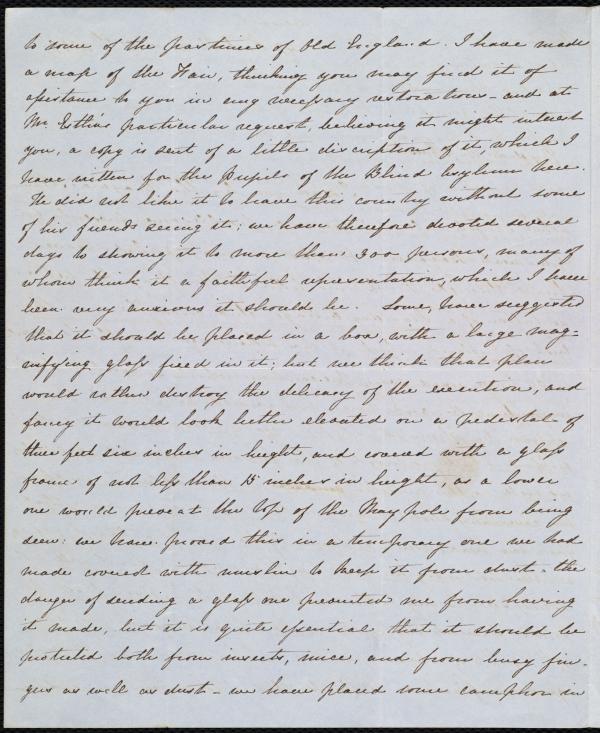 to some of the pastimes of Old England. I have made
a map of the Fair, thinking you may find it of
assistance to you in any necessary restorations - and at
Mr. Estlin's particular request, believing it might interest
you, a copy is sent of a little discription of it, which I
have written for the Pupils of the Blind Asylum here.
He did not like it to leave this country without some
of his friends seeing it; we have therefore devoted several
days to showing it to more than 300 persons, many of
whom think it a faithful representation, which I have
been very anxious it should be. Some, have suggested
that it should be placed in a box, with a large mag=
nifying glass fixed in it; but we think that plan
would rather destroy the delicacy of the execution, and
fancy it would look better elevated on a pedestal of
three feet six inches in height, and covered with a glass
frame of not less than inches in height, as a lower
one would prevent the top of the May pole from being
seen: we have proved this in a temporary one we had
made covered with muslin to keep it from dust. the
danger of sending a glass one prevented me from having
it made, but it is quite essential that it should be
protected both from insects, mice, and from busy fin-
gers as well as dust - we have placed some camphor in